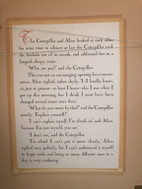 The Caterpillar and Alice looked at each other
for some time in silence: at last the Caterpillar took
the hookah out of its mouth, and addressed her in a
languid, sleepy voice.
"Who are you?" said the Caterpillar.
This was not an encouraging opening for a conver-
sation. Alice replied, rather shyly, "I—I hardly know,
sir, just at present—at least I know who I was when I
got up this morning, but I think I must have been
changed several times since then."
"What do you mean by that?" said the Caterpillar
sternly. "Explain yourself!"
"I can't explain myself, I'm afraid, sir," said Alice,
"because I'm not myself, you see."
"I don't see," said the Caterpillar.
"I'm afraid I can't put it more clearly," Alice
replied very politely, "for I can't understand it myself
to begin with; and being so many different sizes in a
day is very confusing."